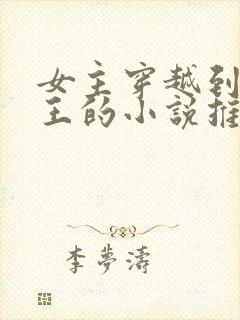 女主穿越到
王的小说推
李夢濤